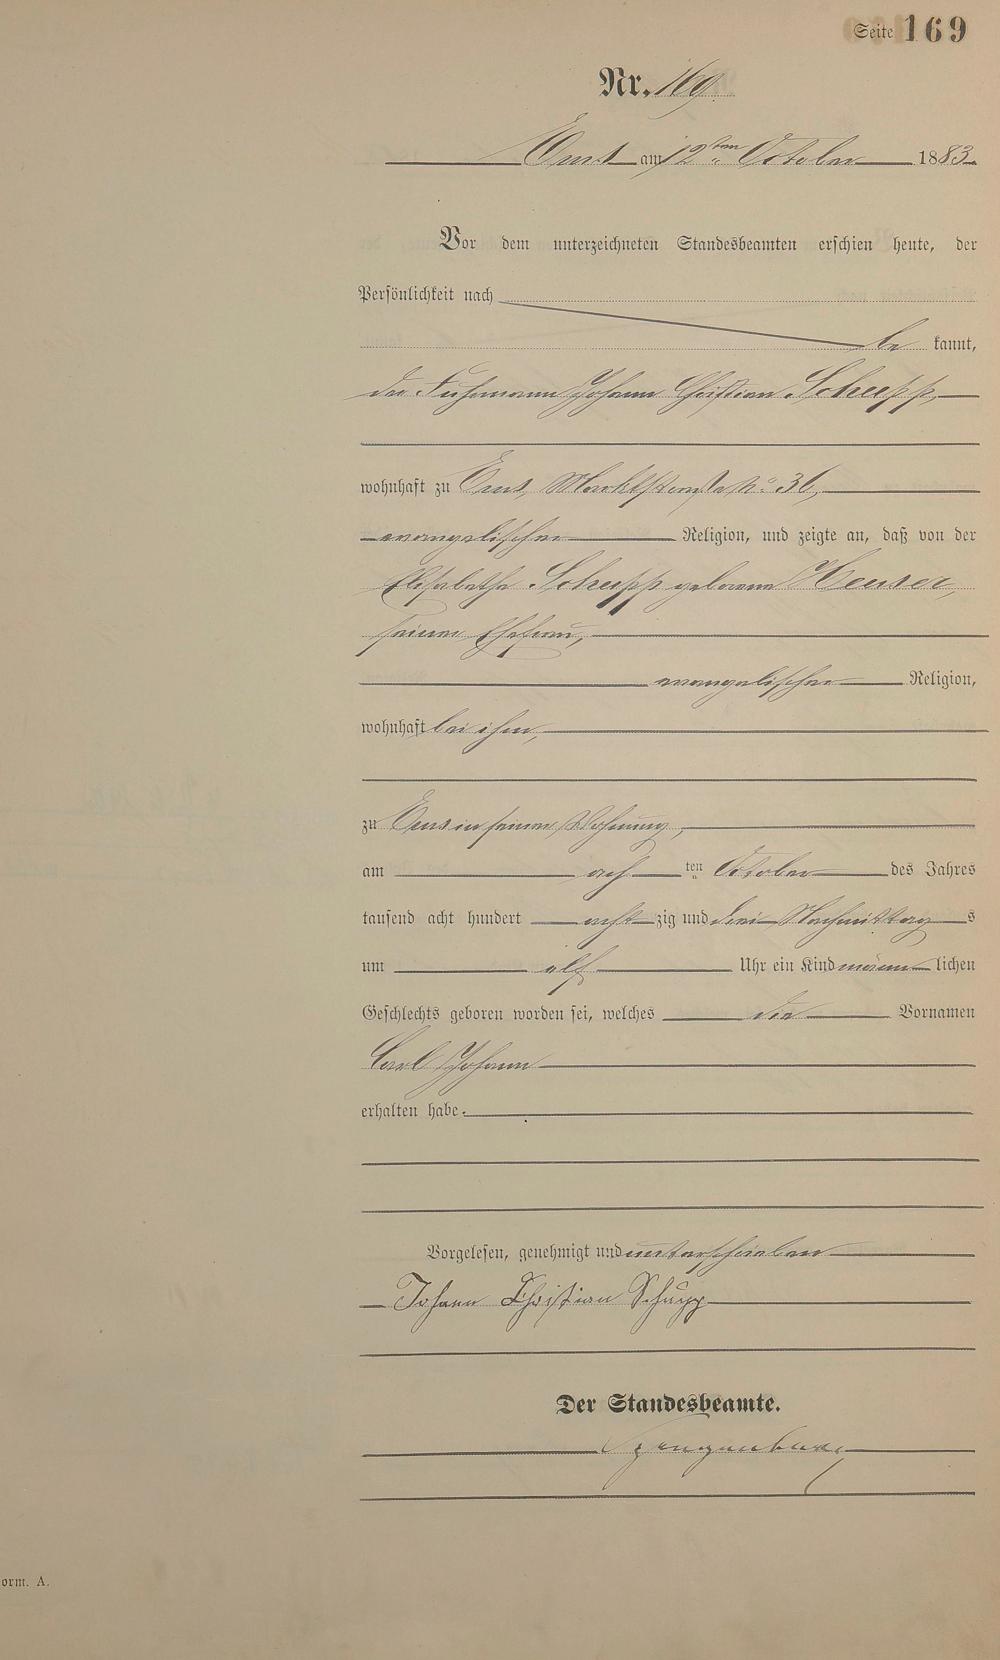 Seite 169
Nr. 169.
Ems am 12ten October 1883.
Vor dem unterzeichneten Standesbeamten erschien heute, der
Persönlichkeit nach
be kannt,
der Fuhrmann Johann Christian Schupp,
wohnhaft zu Ems, Marktstraße No. 36,
evangelischer Religion, und zeigte an, daß von der
Elisabetha Schupp geborene Heuser,
seiner Ehefrau,
evangelischer Religion,
wohnhaft bei ihm,
zu Ems in seiner Wohnung,
am ach ten October des Jahres
tausend acht hundert acht zig und drei Nachmittag s
um elf Uhr ein Kind männ lichen
Geschlechts geboren worden sei, welches die Vornamen
Carl Johann
erhalten habe.
Vorgelesen, genehmigt und unterschrieben
Johann Christian Schupp
Der Standesbeamte.
orm. A.